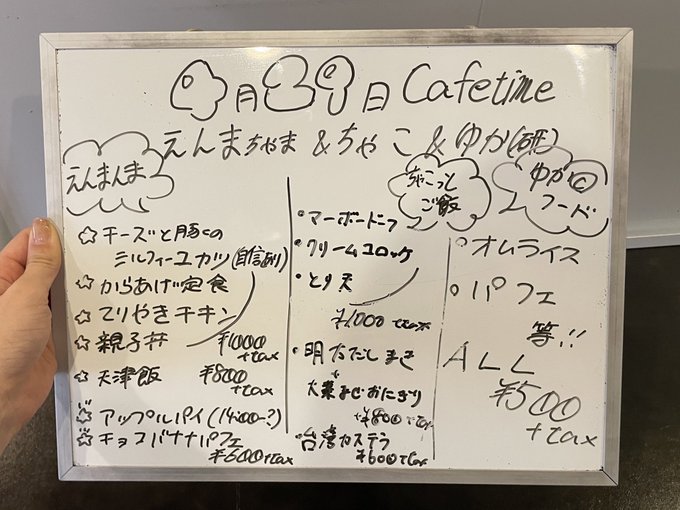 4月29日 Cafetime
えんまちゃま & ちゃこ & ゆか(研)
えんまんま
☆ チーズと豚の
ミルフィーユカツ (自信あり)
☆ からあげ定食
☆ てりやきチキン
☆ 親子丼 ¥1000
+tax
☆ 天津飯 ¥800
+tax
☆ アップルパイ (14:00~?)
☆ チョコバナナパフェ
¥600+tax
ちゃこっと
ご飯
・マーボードーフ
・クリームコロッケ
・とり天
¥1000+tax
・明太だしまき
+
大葉まぜおにぎり
¥800+tax
・台湾カステラ
¥600+tax
ゆか©
フード
・オムライス
・パフェ
等!!
ALL
¥500
+tax